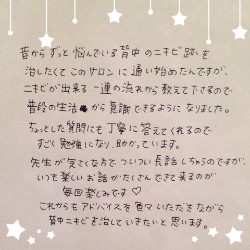 昔からずっと悩んでいる背中のニキビ跡を
治したくてこのサロンに通い始めたんですが、
ニキビが出来る一連の流れから教えて下さるので
普段の生活から意識できるようになりました。
ちょっとした質問にも丁寧に答えてくれるので
すごく勉強になり、助かっています。
先生が気さくな方でついつい長話しちゃうのですが、
いつも楽しいお話がたくさんできて来るのが
毎回楽しみです♡
これからもアドバイスを色々いただきながら
背中ニキビを治していきたいと思います。